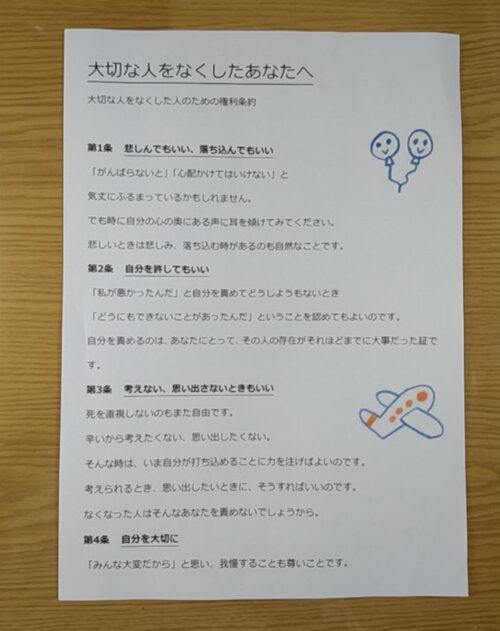 大切な人をなくしたあなたへ
大切な人をなくした人のための権利条約
第1条 悲しんでもいい、落ち込んでもいい
「がんばらないと」「心配かけてはいけない」と
気丈にふるまっているかもしれません。
でも時に自分の心の奥にある声に耳を傾けてみてください。
悲しいときは悲しみ、落ち込む時があるのも自然なことです。
第2条 自分を許してもいい
「私が悪かったんだ」と自分を責めてどうしようもないとき
「どうにもできないことがあったんだ」ということを認めてもよいのです。
自分を責めるのは、あなたにとって、その人の存在がそれほどまでに大事だった証で
す。
第3条 考えない、思い出さないときもいい
死を直視しないのもまた自由です。
辛いから考えたくない、思い出したくない。
そんな時は、いま自分が打ち込めることに力を注げばよいのです。
考えられるとき、思い出したいときに、そうすればいいのです。
なくなった人はそんなあなたを責めないでしょうから。
第4条 自分を大切に
「みんな大変だから」と思い、我慢することも尊いことです。